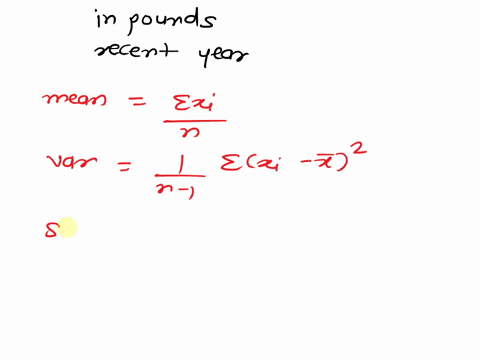 in pounds
recent year
mean = Σxi / n
var = 1 / n-1 Σ(xi - x̄)²
s